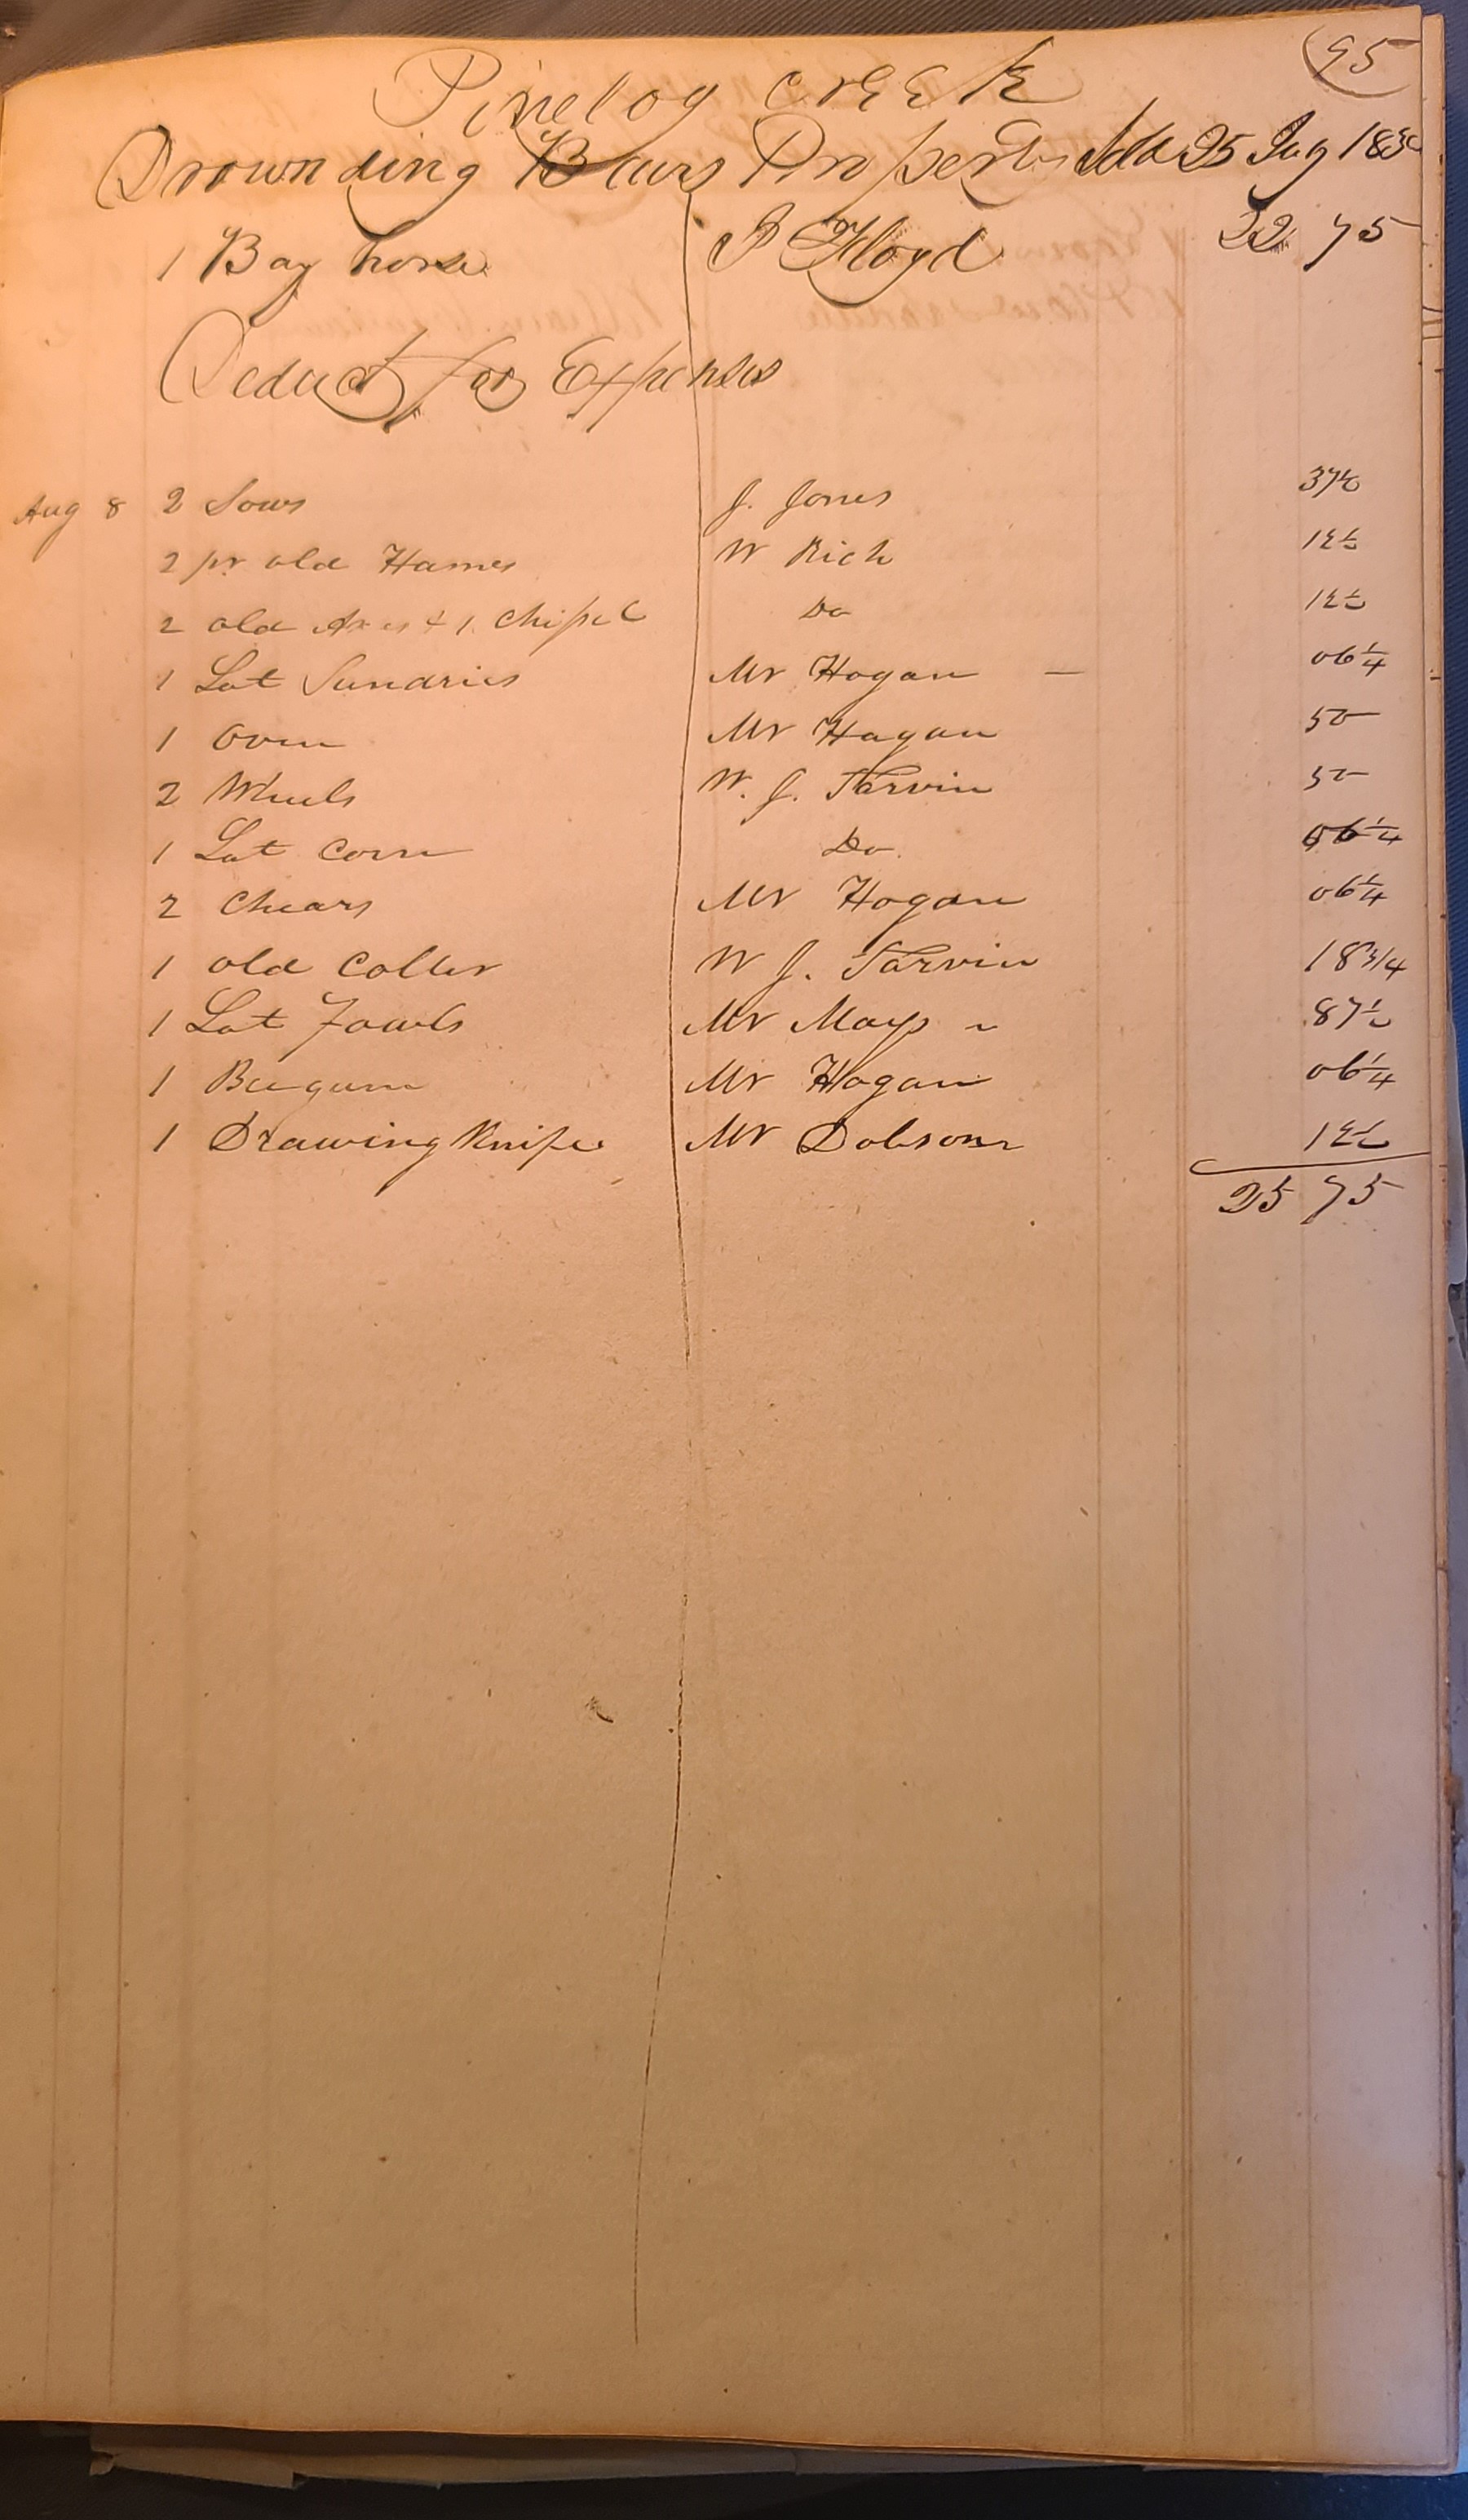 95
Pinelog CrEEk
Drownding Bairs Property Sold 25 Aug 183
1 Bay horse J Floyd 22 75
Deduct for Expenses
Aug 8 2 Sows J. Jones 37½
2 pr old Hames W Rich 12½
2 old Axes & 1 Chipel Do 12½
1 Lot Sundries Mr Hogan — 06¼
1 Oven Mr Hogan 50
2 Wheels W. J. Tarvin 50
1 Lot Corn Do 06¼
2 Chears Mr Hogan 06¼
1 old Coller W J. Tarvin 18 3/4
1 Lot Fowls Mr Mays 87½
1 Beegum Mr Hogan 06¼
1 Drawing Knife Mr Dobson 12½
25 75